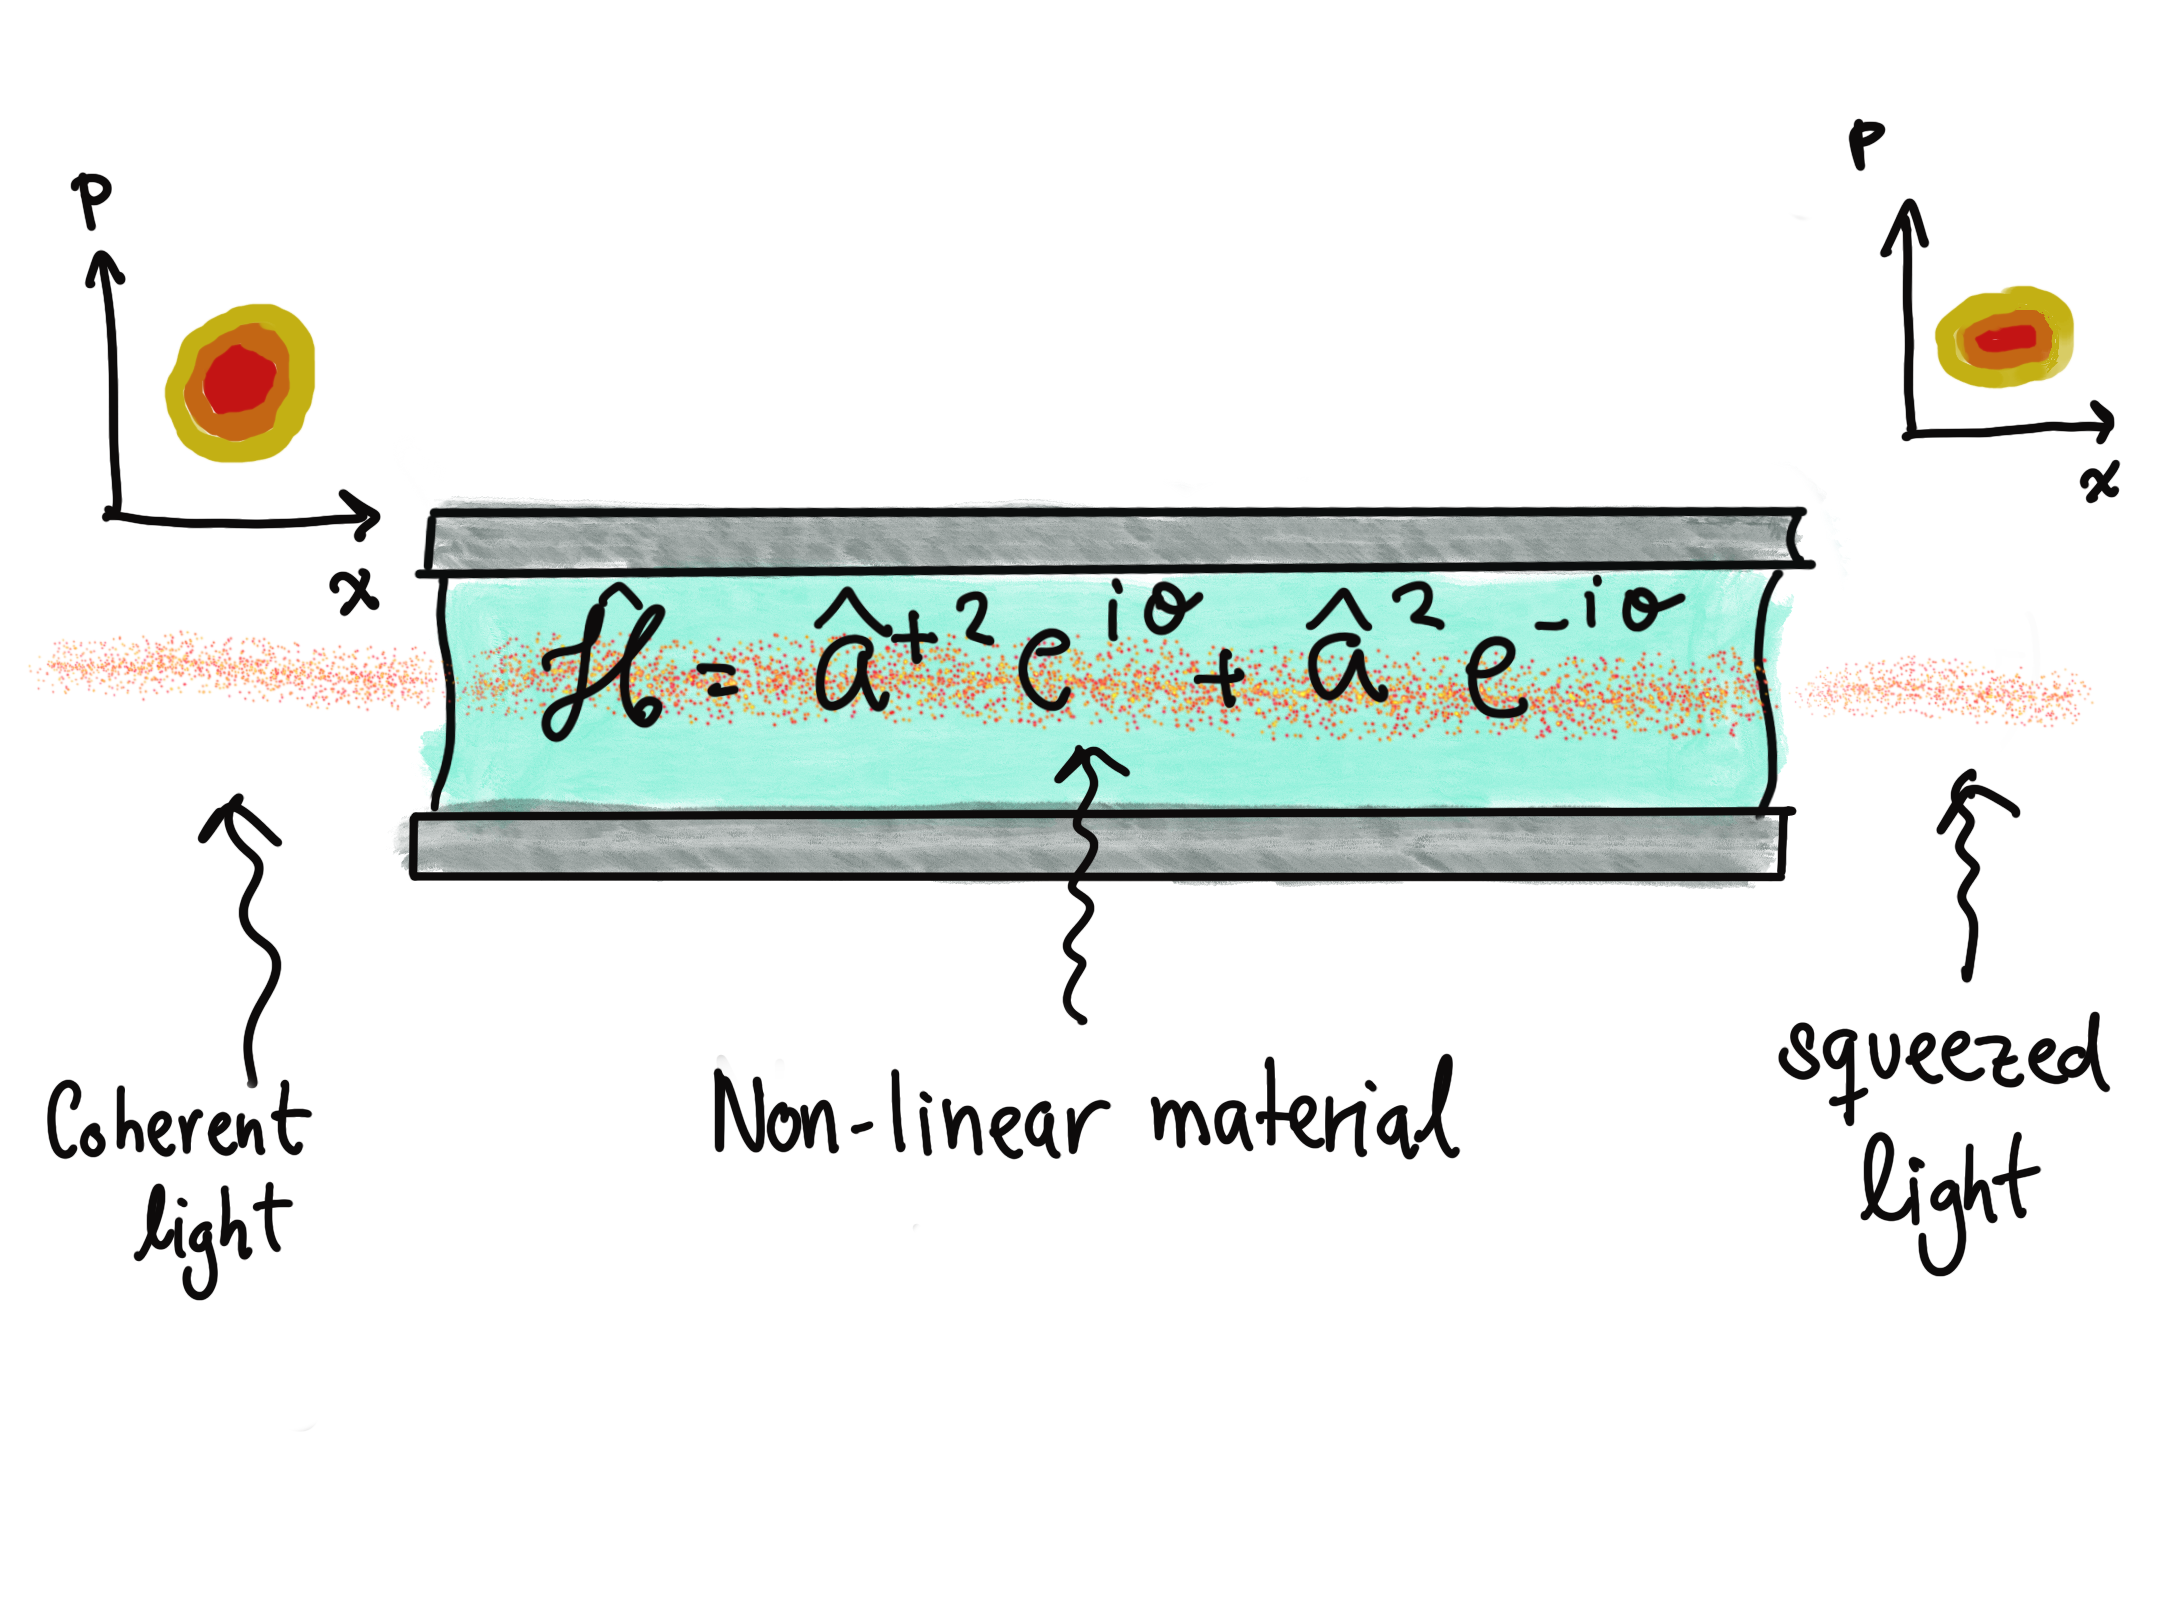 p
x
p
x
Ĥ = â⁺² e^{iθ} + â² e^{-iθ}
Coherent
light
Non-linear material
squeezed
light